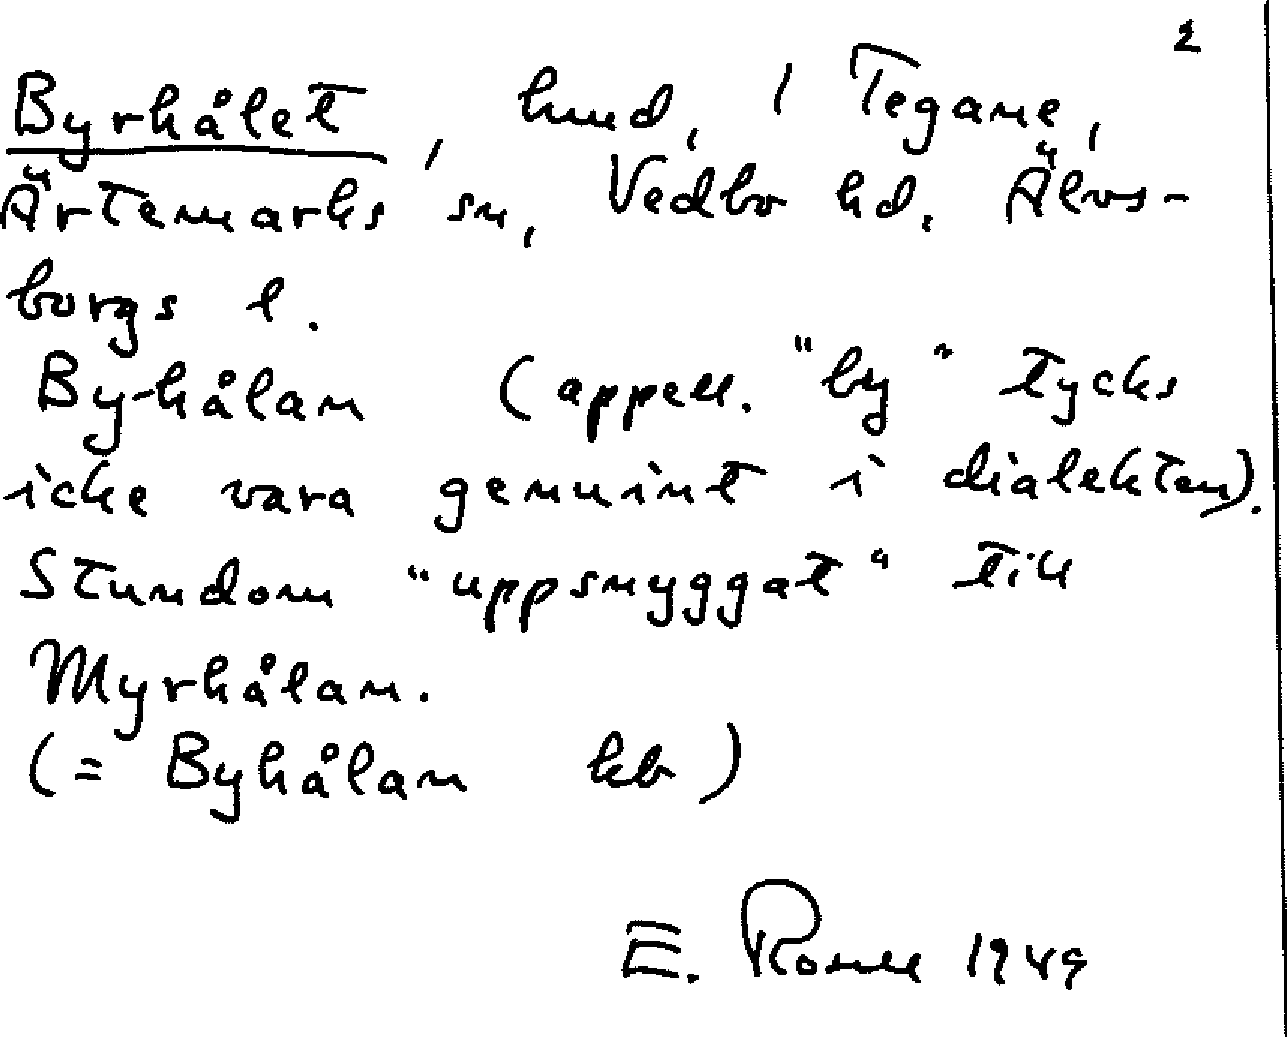 2
Byrhålet, hmd, 1 Tegane,
Ärtemarks sn, Vedbo hd. Älvs-
borgs l.
Byhålan (appell. "by" tycks
icke vara genuint i dialekten).
Stundom "uppsnyggat" till
Myrhålan.
(= Byhålan kb)
E. 1949